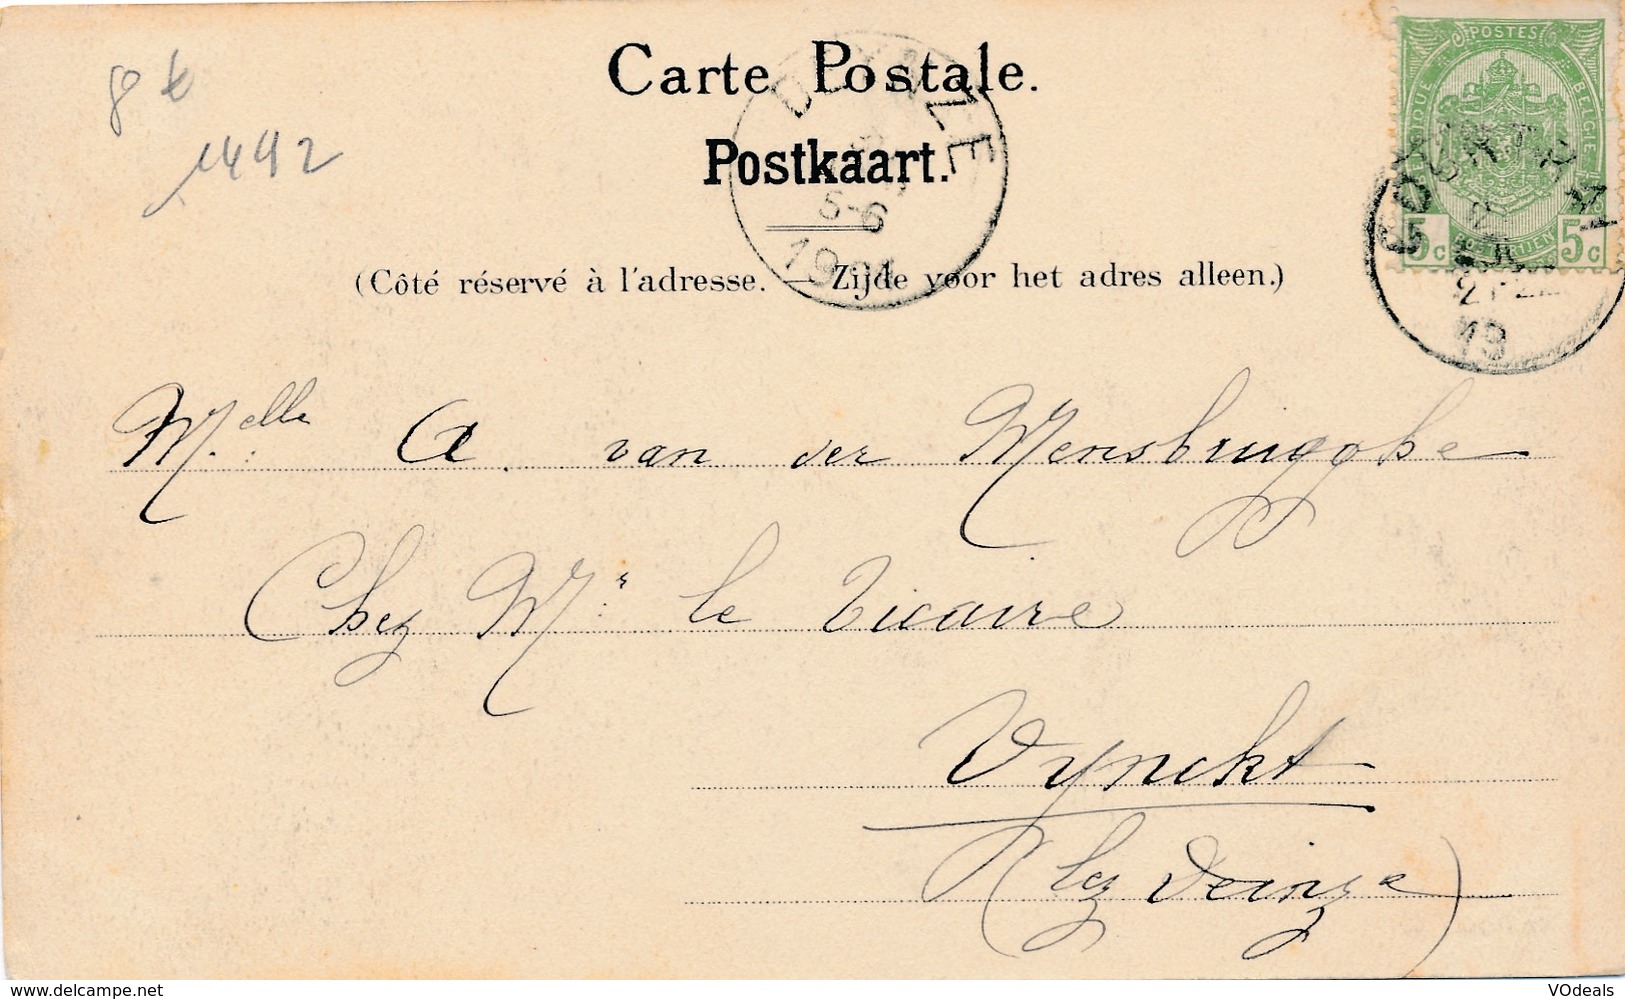 Carte Postale.
Postkaart.
(Côté réservé à l'adresse. — Zijde voor het adres alleen.)
1442
POSTES
BELGIQUE BELGIE
POSTERIJEN
5c 5c
5-6
Melle A. van der Mensbrugghe
Chez Mr le Vicaire
Vynckt
(lez Deinze)
www.delcampe.net
VOdeals